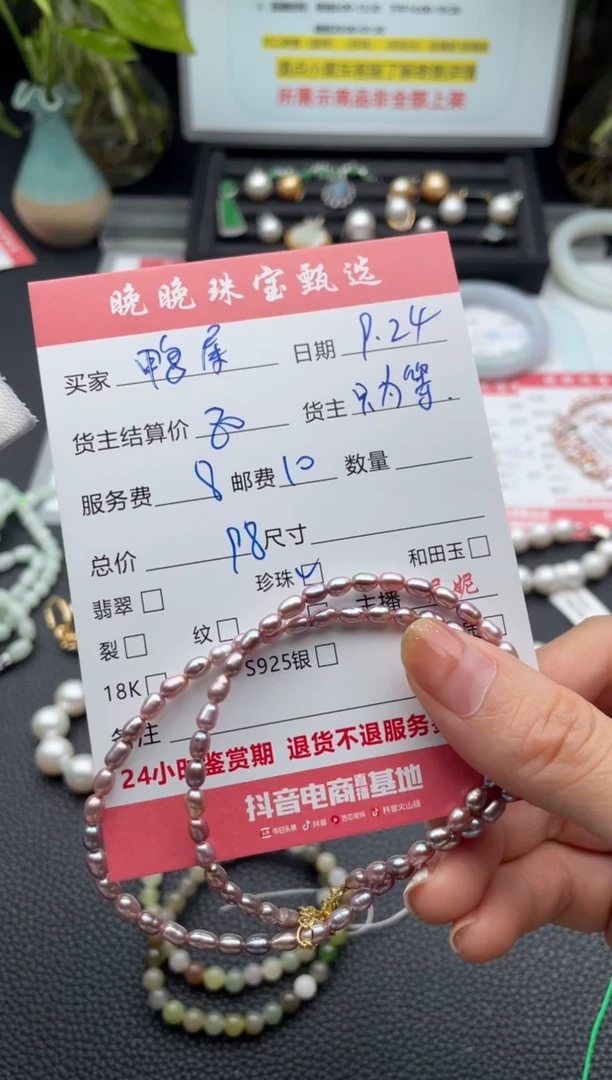 所展示商品非全部上架
晚晚珠宝甄选
买家 鸭屎 日期 9.24
货主结算价 80 货主 只为等.
服务费 8 邮费 10 数量
总价 98 尺寸
翡翠 珍珠 和田玉
裂 纹 主播 妮
18K S925银
备注
24小时鉴赏期 退货不退服务
抖音电商直播基地
今日头条 抖音 西瓜视频 抖音火山版